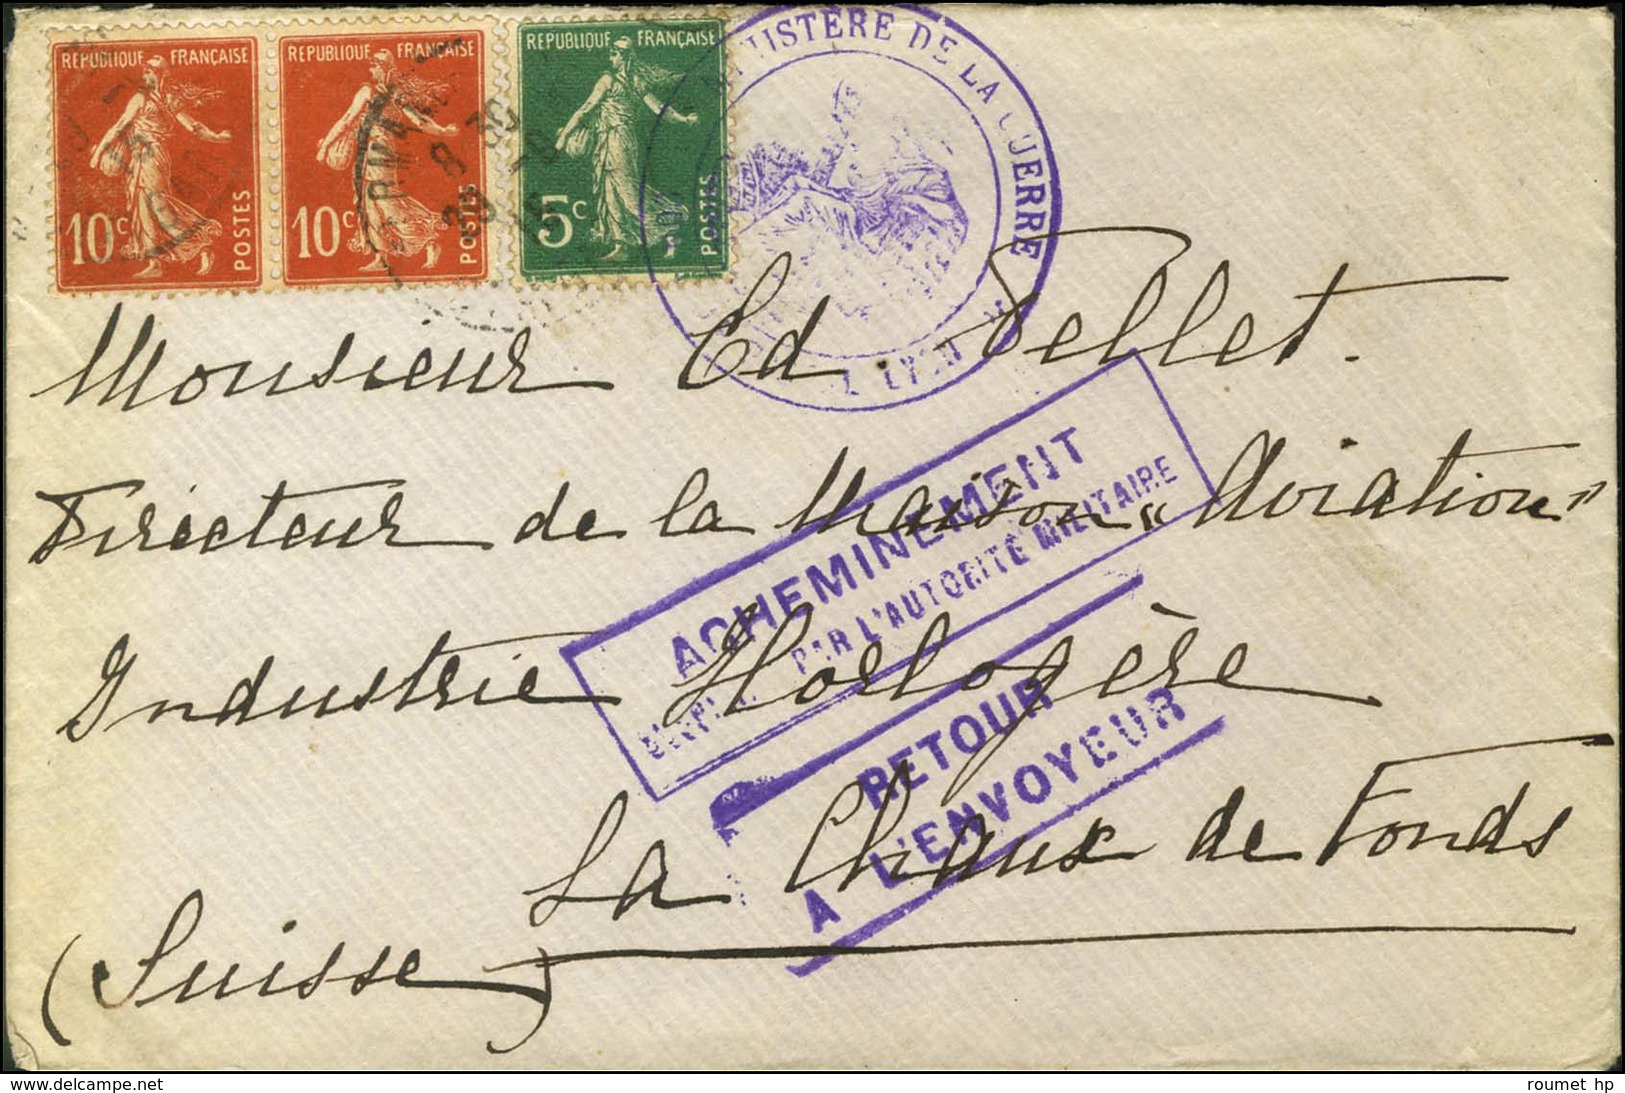 REPUBLIQUE FRANÇAISE
10c
POSTES
REPUBLIQUE FRANÇAISE
10c
POSTES
REPUBLIQUE FRANÇAISE
5c
POSTES
8 30
MINISTÈRE DE LA GUERRE
LYON
Monsieur Ed. Pellet.
Directeur de la Maison „Aviation"
Industrie Horlogère
La Chaux de Fonds
(Suisse)
ACHEMINEMENT
PAR L'AUTORITÉ MILITAIRE
RETOUR
A L'ENVOYEUR
www.delcampe.net
roumet hp